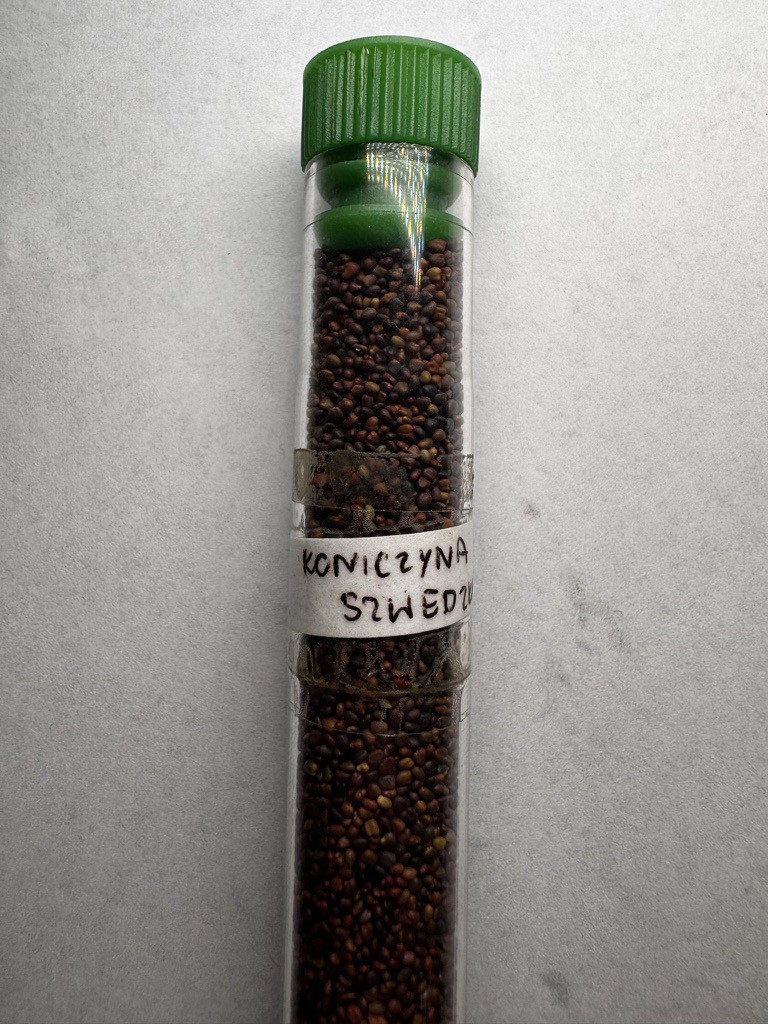 KONICZYNA
SZWEDZK